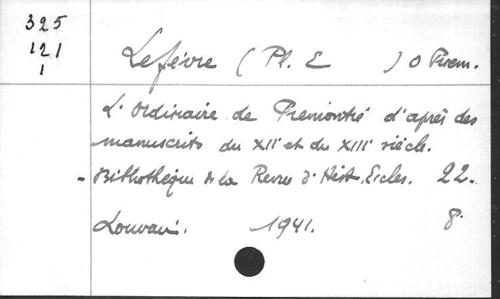 325
121
1
Lefèvre (Pl. E ) O Prem.
L'Ordinaire de Prémontré d'après des
manuscrits du XIIe et du XIIIe siècle.
- Bibliothèque de la Revue d'Hist. Eccles. 22.
Louvain. 1941. 8°